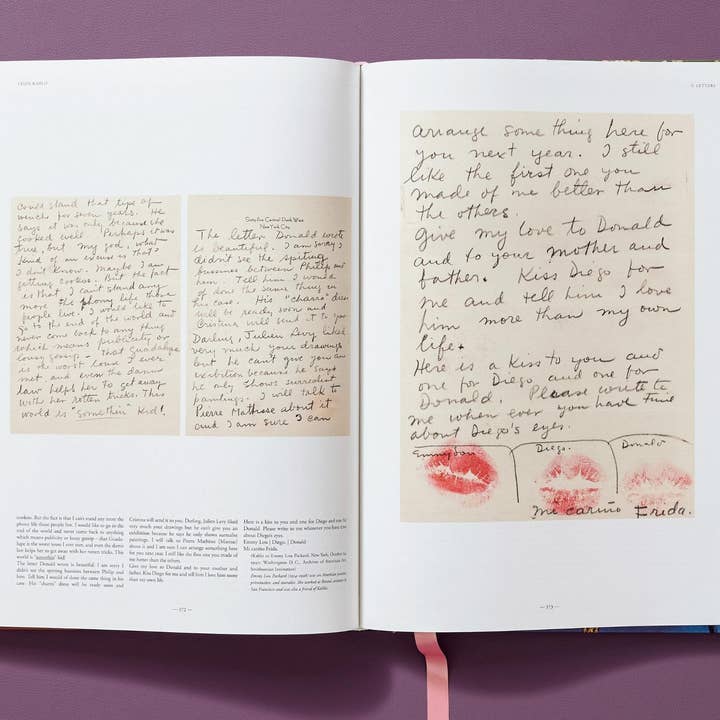 FRIDA KAHLO
could stand that type of
wench for seven years. He
says it was only because she
cooked well. Perhaps it was
true, but my god, what
kind of an excuse is that?
I don't know. Maybe I am
getting cookoo. But the fact
is that I can't stand any
more the phony life those
people live. I would like to
go to the end of the world and
never come back to any thing
which means publicity or
lousy gossip - That Guadalupe
is the worst louse I ever
met and even the damn
law helps her to get away
with her rotten tricks. This
world is "somethin" Kid!
Sixty-five Central Park West
New York City
The letter Donald wrote
is beautiful. I am sorry I
didn't see the spitting
bussines between Philip and
him. Tell him I would
of done the same thing in
his case. His "charro" dress
will be ready soon and
Cristina will send it to you.
Darling, Julien Levy liked
very much your drawings
but he can't give you an
exibition because he says
he only shows surrealist
paintings. I will talk to
Pierre Mathisse about it
and I am sure I can
cookoo. But the fact is that I can't stand any more the
phony life those people live. I would like to go to the
end of the world and never come back to anything
which means publicity or lousy gossip – that Guada-
lupe is the worst louse I ever met, and even the damn
law helps her to get away with her rotten tricks. This
world is "somethin" kid!
The letter Donald wrote is beautiful. I am sorry I
didn't see the spitting bussines between Philip and
him. Tell him I would of done the same thing in his
case. His "charro" dress will be ready soon and
Cristina will send it to you. Darling, Julien Levy liked
very much your drawings but he can't give you an
exibition because he says he only shows surrealist
paintings. I will talk to Pierre Mathisse
about it and I am sure I can arrange something here
for you next year. I still like the first one you made
of me better than the others.
Give my love to Donald and to your mother and
father. Kiss Diego for me and tell him I love him more
than my own life.
Here is a kiss to you and one for Diego and one for
Donald. Please write to me whenever you have time
about Diego's eyes.
Emmy Lou | Diego | Donald
Mi cariño Frida.
— 272 —
LETTERS
arrange some thing here for
you next year. I still
like the first one you
made of me better than
the others.
Give my love to Donald
and to your mother and
father. Kiss Diego for
me and tell him I love
him more than my own
life.
Here is a kiss to you and
one for Diego and one for
Donald. Please write to
me when ever you have time
about Diego's eyes.
Emmylou Diego. Donald
Mi cariño Frida.
— 273 —